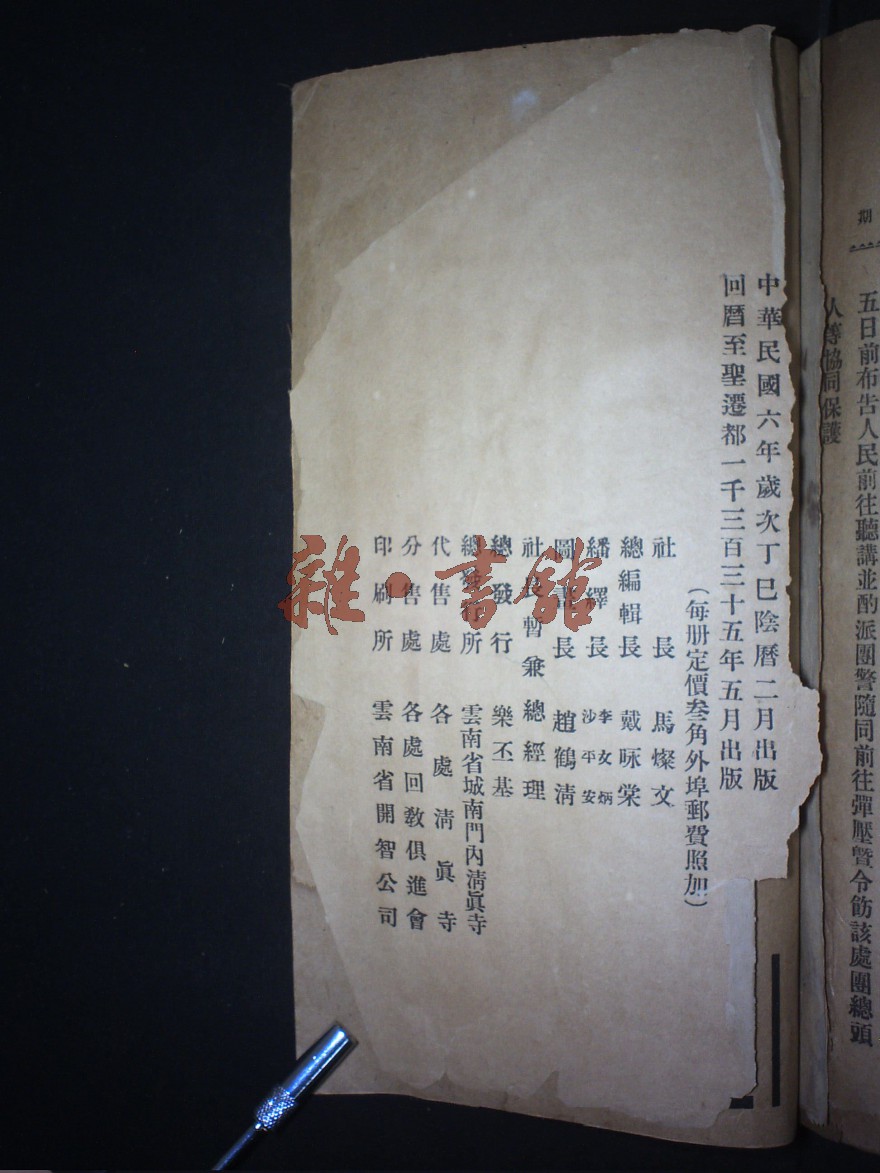 期
五日前布告人民前往聽講並酌派團警隨同前往彈壓暨令飭該處團總頭
人等協同保護
中華民國六年歲次丁巳陰曆二月出版
回曆至聖遷都一千三百三十五年五月出版
(每册定價叁角外埠郵費照加)
社長 馬燦文
總編輯長 戴咏棠
繙繹長 李文炳 沙平安
圖書長 趙鶴清
社長暫兼總經理
總發行 樂丕基
總發行所 雲南省城南門內清眞寺
代售處 各處清眞寺
分售處 各處回教俱進會
印刷所 雲南省開智公司
雜·書館